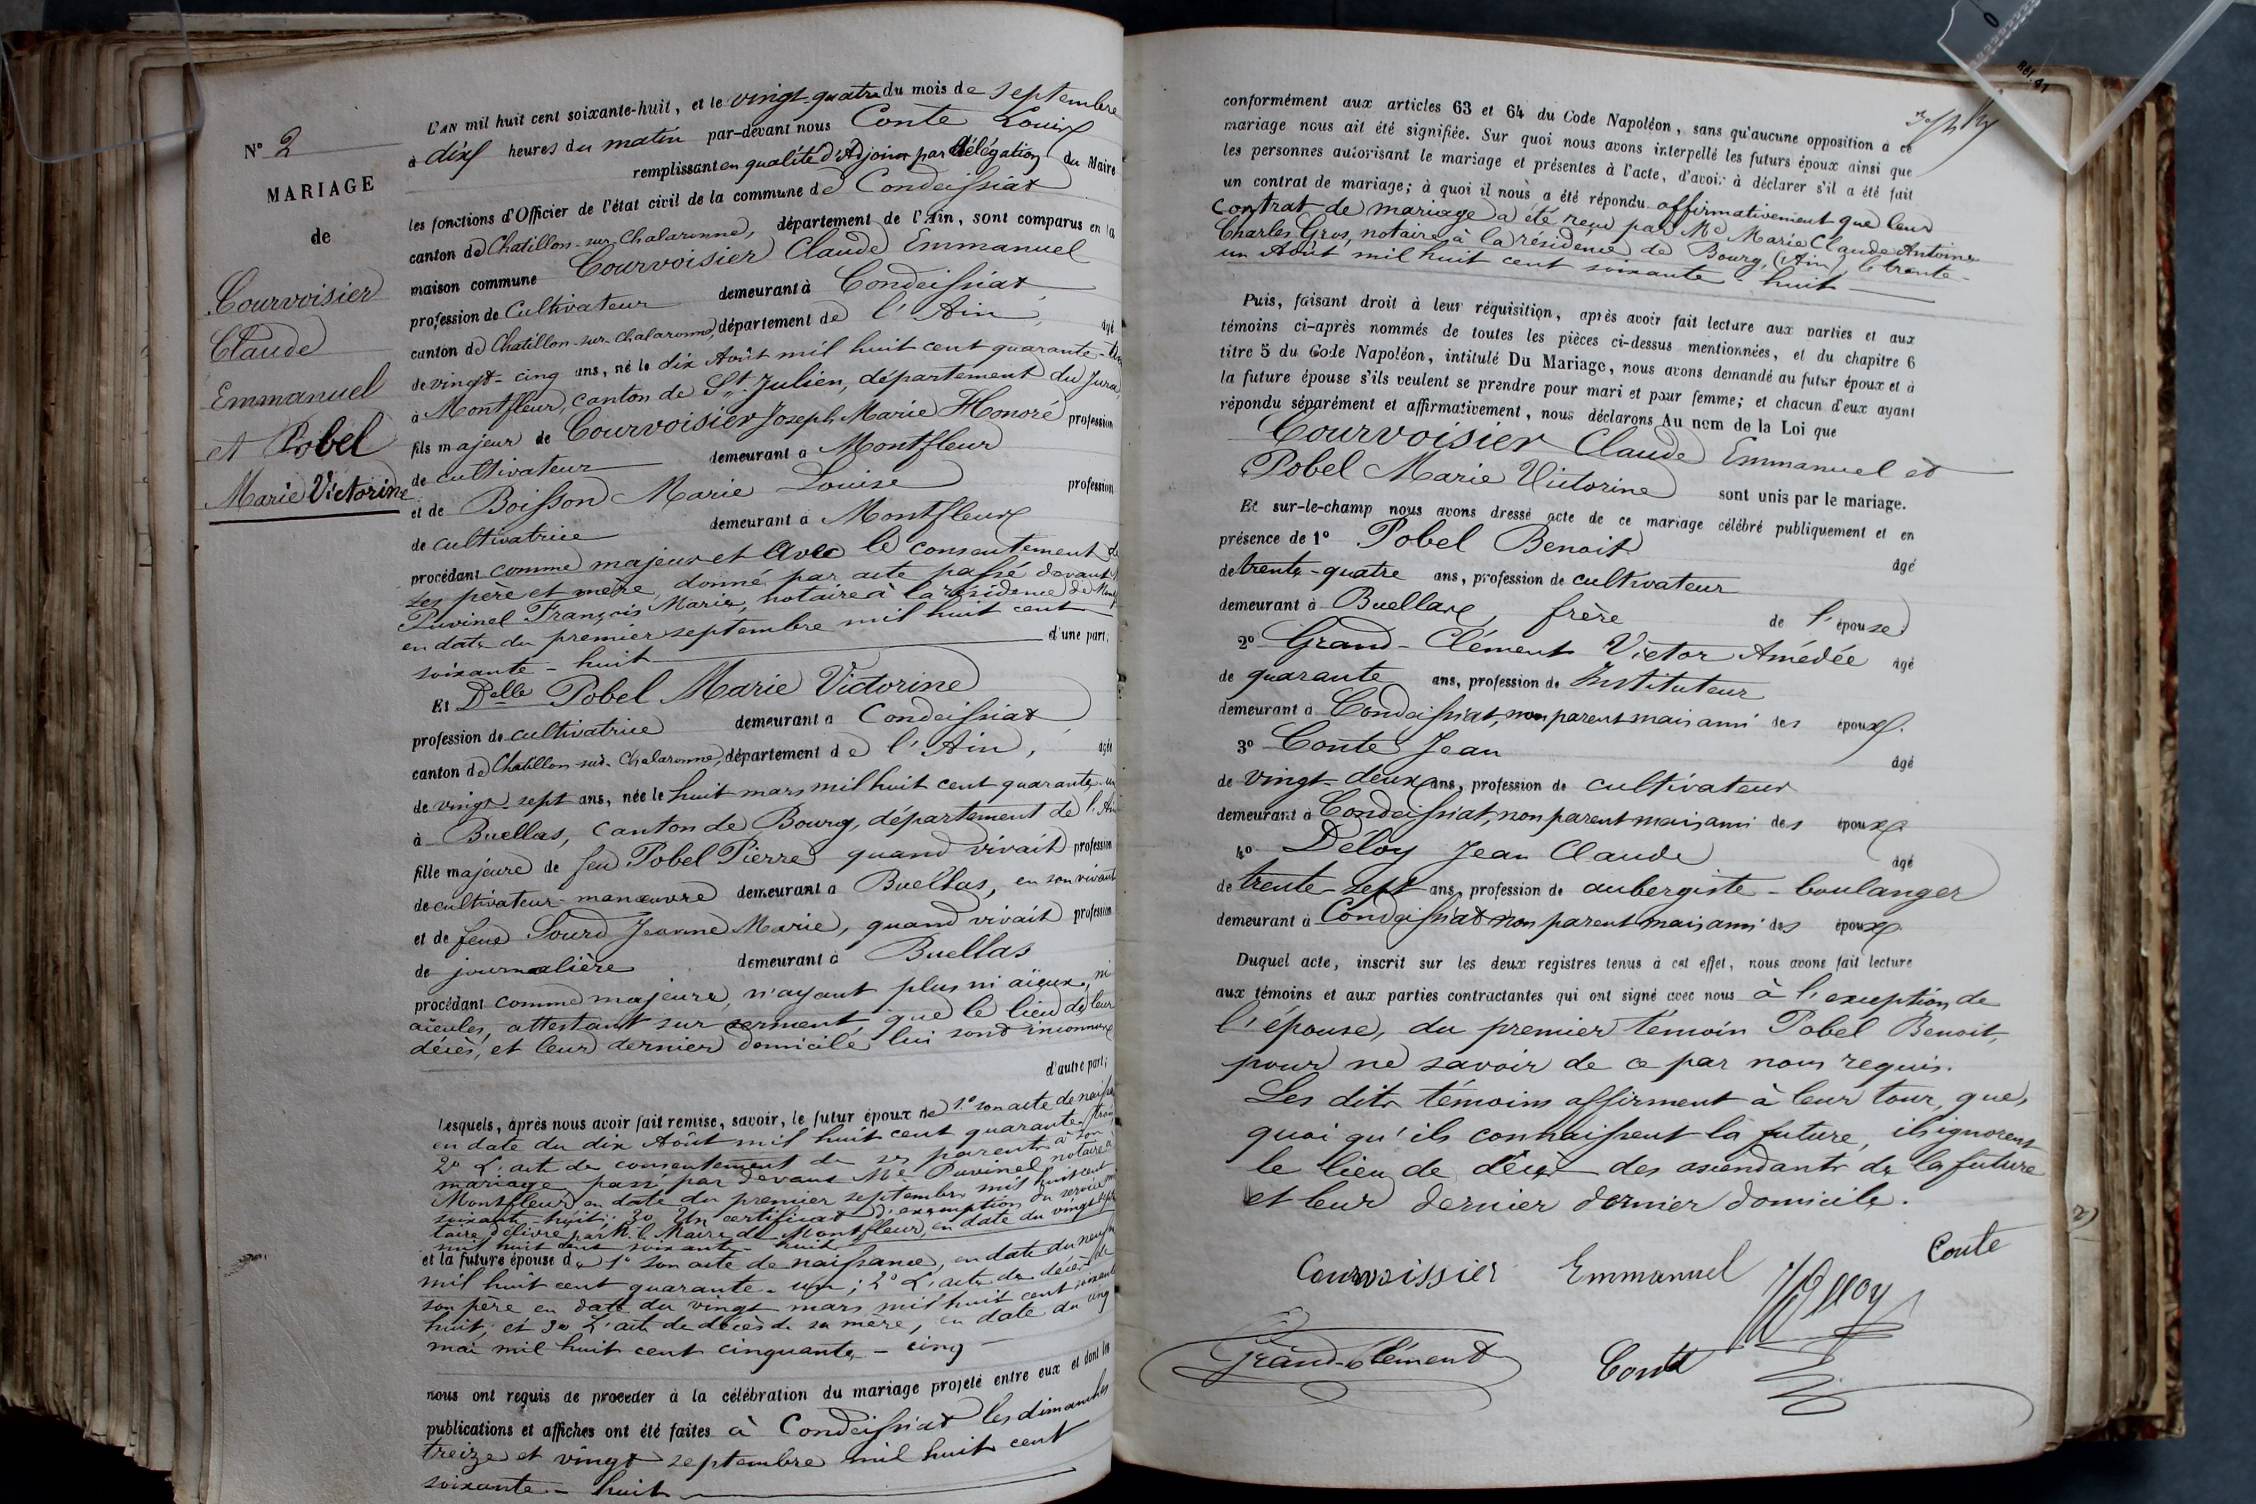 N° 2
MARIAGE
de
Courvoisier
Claude
Emmanuel
et Pobel
Marie Victorine
L'AN mil huit cent soixante-huit, et le vingt-quatre du mois de septembre
à dix heures du matin par-devant nous Conte Louis
remplissant en qualité d'Adjoint par délégation du Maire
les fonctions d'Officier de l'état civil de la commune de Condeissiat
canton de Chatillon-sur-Chalaronne, département de l'Ain, sont comparus en la
maison commune Courvoisier Claude Emmanuel
profession de Cultivateur demeurant à Condeissiat
canton de Chatillon-sur-Chalaronne, département de l'Ain, âgé
de vingt-cinq ans, né le dix Août mil huit cent quarante-trois
à Montfleur, canton de St Julien, département du Jura,
fils majeur de Courvoisier Joseph Marie Honoré profession
de cultivateur demeurant à Montfleur
et de Boisson Marie Louise profession
de cultivatrice demeurant à Montfleur
procédant comme majeur et avec le consentement de
ses père et mère, donné par acte passé devant
Puvinel François Marie, notaire à la résidence de
en date du premier septembre mil huit cent
soixante-huit d'une part;
Et Delle Pobel Marie Victorine
profession de cultivatrice demeurant à Condeissiat
canton de Chatillon-sur-Chalaronne, département de l'Ain, âgée
de vingt-sept ans, née le huit mars mil huit cent quarante-un
à Buellas, canton de Bourg, département de l'Ain
fille majeure de feu Pobel Pierre quand vivait profession
de cultivateur-manœuvre demeurant à Buellas, en son vivant
et de feue Sourd Jeanne Marie, quand vivait profession
de journalière demeurant à Buellas
procédant comme majeure, n'ayant plus ni aïeux, ni
aïeules, attestant sur serment que le lieu de leur
décès, et leur dernier domicile lui sont inconnus
d'autre part;
Lesquels, après nous avoir fait remise, savoir, le futur époux de 1° son acte de naissance
en date du dix Août mil huit cent quarante-trois
2° L'acte de consentement de ses parents à son
mariage passé par devant Me Puvinel notaire à
Montfleur en date du premier septembre mil huit cent
soixante-huit; 3° Un certificat d'exemption du service mili
taire délivré par M. le Maire de Montfleur, en date du vingt sept
mil huit cent soixante-huit
et la future épouse de 1° son acte de naissance, en date du neuf
mil huit cent quarante-un; 2° L'acte de décès de
son père en date du vingt mars mil huit cent soixante
huit; et 3° L'acte de décès de sa mère, en date du cinq
mai mil huit cent cinquante-cinq
nous ont requis de procéder à la célébration du mariage projeté entre eux et dont les
publications et affiches ont été faites à Condeissiat les dimanches
treize et vingt septembre mil huit cent
soixante-huit
conformément aux articles 63 et 64 du Code Napoléon, sans qu'aucune opposition à ce
mariage nous ait été signifiée. Sur quoi nous avons interpellé les futurs époux ainsi que
les personnes autorisant le mariage et présentes à l'acte, d'avoir à déclarer s'il a été fait
un contrat de mariage; à quoi il nous a été répondu affirmativement que leur
contrat de mariage a été reçu par Me Marie Claude Antoine
Charles Gros, notaire à la résidence de Bourg, (Ain), le trente-
un Août mil huit cent soixante-huit
Puis, faisant droit à leur réquisition, après avoir fait lecture aux parties et aux
témoins ci-après nommés de toutes les pièces ci-dessus mentionnées, et du chapitre 6
titre 5 du Code Napoléon, intitulé Du Mariage, nous avons demandé au futur époux et à
la future épouse s'ils veulent se prendre pour mari et pour femme; et chacun d'eux ayant
répondu séparément et affirmativement, nous déclarons Au nom de la Loi que
Courvoisier Claude Emmanuel et
Pobel Marie Victorine sont unis par le mariage.
Et sur-le-champ nous avons dressé acte de ce mariage célébré publiquement et en
présence de 1° Pobel Benoit âgé
de trente-quatre ans, profession de cultivateur
demeurant à Buellas, frère de l'épouse
2° Grand-Clément Victor Amédée âgé
de quarante ans, profession de Instituteur
demeurant à Condeissiat, non parent mais ami des époux.
3° Conte Jean âgé
de vingt-deux ans, profession de cultivateur
demeurant à Condeissiat, non parent mais ami des époux
4° Deloy Jean Claude âgé
de trente-sept ans, profession de aubergiste-boulanger
demeurant à Condeissiat non parent mais ami des époux
Duquel acte, inscrit sur les deux registres tenus à cet effet, nous avons fait lecture
aux témoins et aux parties contractantes qui ont signé avec nous à l'exception de
l'épouse, du premier témoin Pobel Benoit,
pour ne savoir de ce par nous requis.
Les dits témoins affirment à leur tour, que,
quoi qu'ils connaissent la future, ils ignorent
le lieu de décès des ascendants de la future
et leur dernier dernier domicile.
Courvoissier Emmanuel Conte
Deloy
Grand-Clément Conte